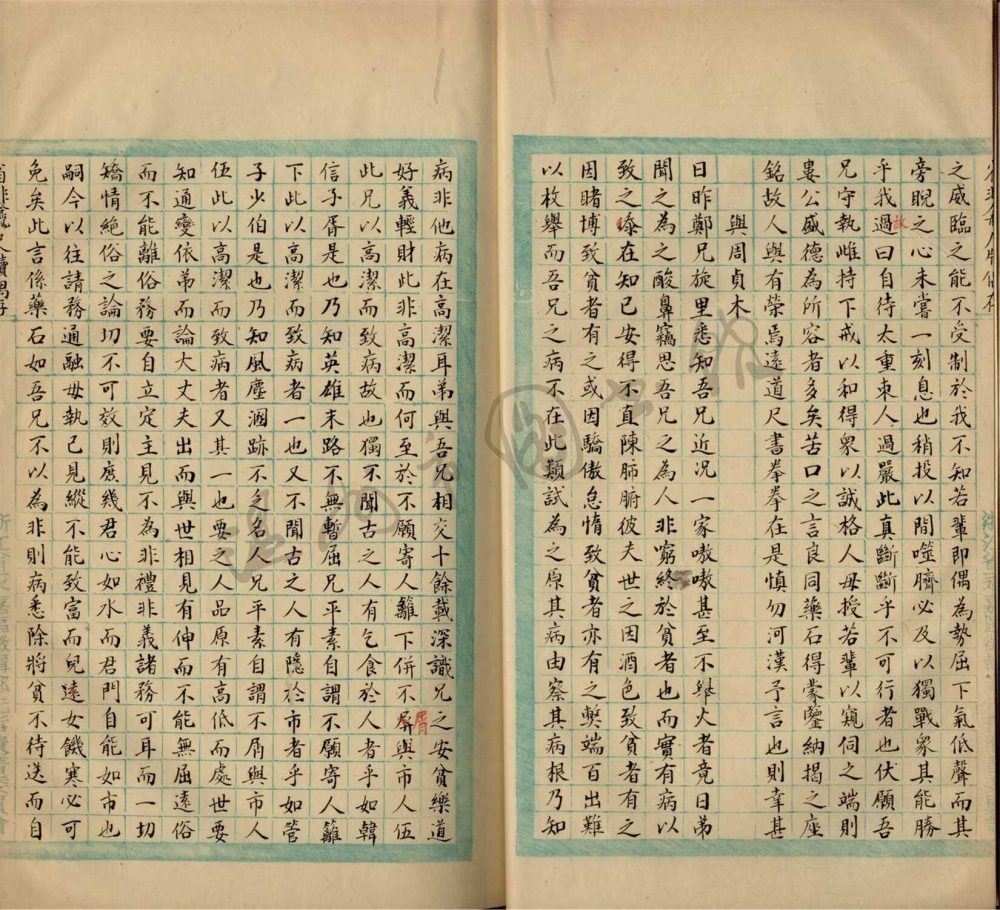 之威臨之能不受制於我不知若輩即偶為勢屈下氣低聲而其
旁睨之心未嘗一刻息也稍投以間噬臍必及以獨戰衆其能勝
乎我過故曰自待太重束人過嚴此真斷斷乎不可行者也伏願吾
兄守執雌持下戒以和得衆以誠格人毋授若輩以窺伺之端則
婁公盛德為所容者多矣苦口之言良同藥石得蒙鑒納揭之座
銘故人與有榮焉遠道尺書拳拳在是慎勿河漢予言也則幸甚
與周貞木
日昨鄭兄旋里悉知吾兄近况一家嗷嗷甚至不舉火者竟日弟
聞之為之酸鼻竊思吾兄之為人非窮終於貧者也而實有病以
致之泰在知己安得不直陳肺腑彼夫世之因酒色致貧者有之
因賭博致貧者有之或因驕傲怠惰致貧者亦有之弊端百出難
以枚舉而吾兄之病不在此類試為之原其病由察其病根乃知
病非他病在高潔耳弟與吾兄相交十餘載深識兄之安貧樂道
好義輕財此非高潔而何至於不願寄人籬下併不屑與市人伍
此兄以高潔而致病故也獨不聞古之人有乞食於人者乎如韓
信子胥是也乃知英雄末路不無暫屈兄平素自謂不願寄人籬
下此以高潔而致病者一也又不聞古之人有隱於市者乎如管
子少伯是也乃知風塵溷跡不乏名人兄平素自謂不屑與市人
伍此以高潔而致病者又其一也要之人品原有高低而處世要
知通變依弟而論大丈夫出而與世相見有伸而不能無屈遠俗
而不能離俗務要自立定主見不為非禮非義諸務可耳而一切
矯情絕俗之論切不可效則庶幾君心如水而君門自能如市也
嗣今以往請務通融毋執己見縱不能致富而兒逺女饑寒必可
免矣此言係藥石如吾兄不以為非則病悉除將貧不待送而自